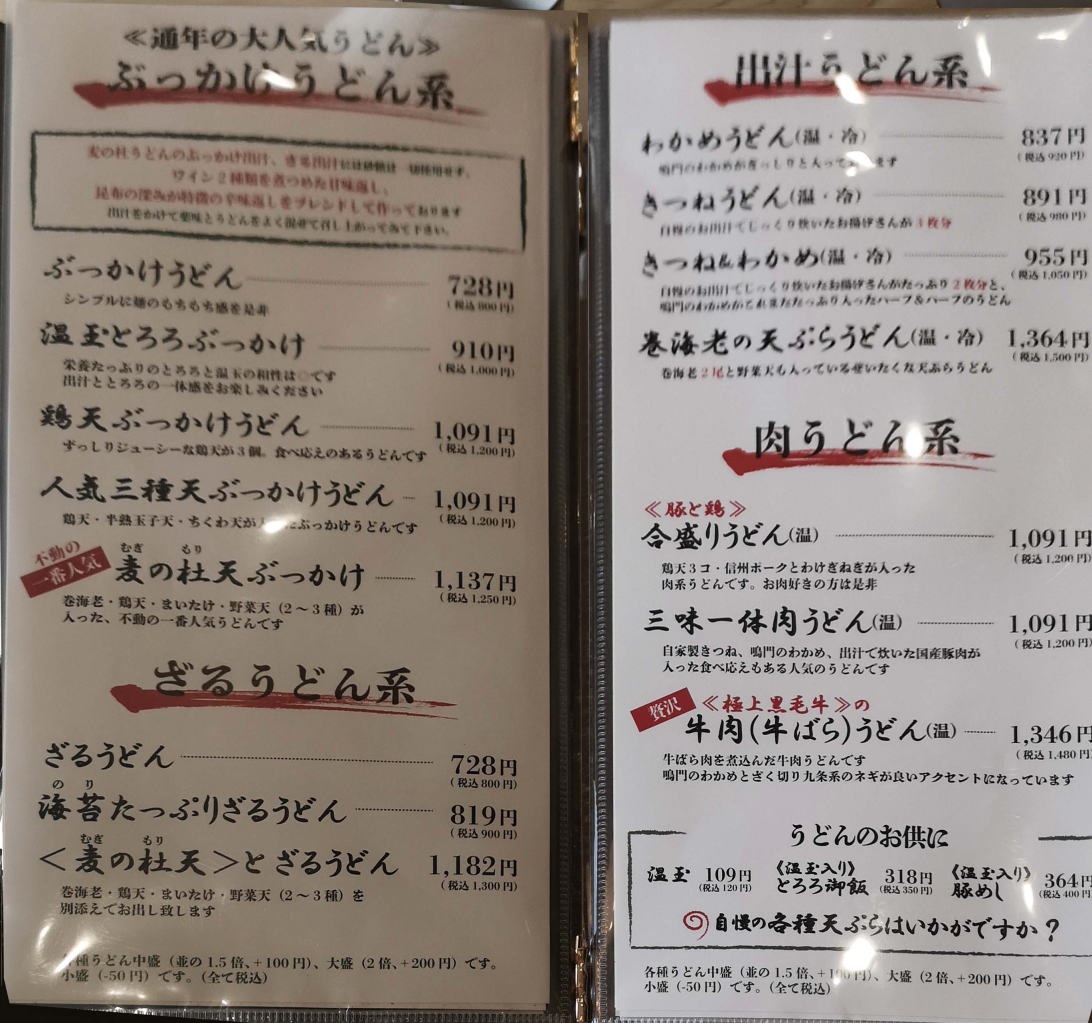 ≪通年の大人気うどん≫
ぶっかけうどん系
麦の杜うどんのぶっかけ出汁、ざる出汁には砂糖は一切使用せず、
ワイン2種類を煮つめた甘味返し、
昆布の深みが特徴の辛味返しをブレンドして作っております
出汁をかけて薬味とうどんをよく混ぜて召し上がってみて下さい。
ぶっかけうどん 728円
(税込800円)
シンプルに麺のもちもち感を是非
温玉とろろぶっかけ 910円
(税込1,000円)
栄養たっぷりのとろろと温玉の相性は◎です
出汁ととろろの一体感をお楽しみください
鶏天ぶっかけうどん 1,091円
(税込1,200円)
ずっしりジューシーな鶏天が3個。食べ応えのあるうどんです
人気三種天ぶっかけうどん 1,091円
(税込1,200円)
鶏天・半熟玉子天・ちくわ天が たぶっかけうどんです
不動の
一番人気
むぎ もり
麦の杜天ぶっかけ 1,137円
(税込1,250円)
巻海老・鶏天・まいたけ・野菜天(2〜3種)が
入った、不動の一番人気うどんです
ざるうどん系
ざるうどん 728円
(税込800円)
のり
海苔たっぷりざるうどん 819円
(税込900円)
むぎ もり
<麦の杜天>とざるうどん 1,182円
(税込1,300円)
巻海老・鶏天・まいたけ・野菜天(2〜3種)を
別添えでお出し致します
各種うどん中盛(並の1.5倍、+100円)、大盛(2倍、+200円)です。
小盛(-50円)です。(全て税込)
出汁うどん系
わかめうどん(温・冷) 837円
(税込920円)
鳴門のわかめがぎっしりと入って ます
きつねうどん(温・冷) 891円
(税込980円)
自慢のお出汁でじっくり炊いたお揚げさんが3枚分
きつね&わかめ(温・冷) 955円
(税込1,050円)
自慢のお出汁でじっくり炊いたお揚げさんがたっぷり2枚分と、
鳴門のわかめがこれまたたっぷり入ったハーフ&ハーフのうどん
巻海老の天ぷらうどん(温・冷) 1,364円
(税込1,500円)
巻海老2尾と野菜天も入っているぜいたくな天ぷらうどん
肉うどん系
≪豚と鶏≫
合盛りうどん(温) 1,091円
(税込1,200円)
鶏天3コ・信州ポークとわけぎねぎが入った
肉系うどんです。お肉好きの方は是非
三味一体肉うどん(温) 1,091円
(税込1,200円)
自家製きつね、鳴門のわかめ、出汁で炊いた国産豚肉が
入った食べ応えもある人気のうどんです
贅沢
≪極上黒毛牛≫の
牛肉(牛ばら)うどん(温) 1,346円
(税込1,480円)
牛ばら肉を煮込んだ牛肉うどんです
鳴門のわかめとざく切り九条系のネギが良いアクセントになっています
うどんのお供に
温玉 109円
(税込120円)
《温玉入り》
とろろ御飯 318円
(税込350円)
《温玉入り》
豚めし 364円
(税込400円)
自慢の各種天ぷらはいかがですか?
各種うどん中盛(並の1.5倍、+100円)、大盛(2倍、+200円)です。
小盛(-50円)です。(全て税込)